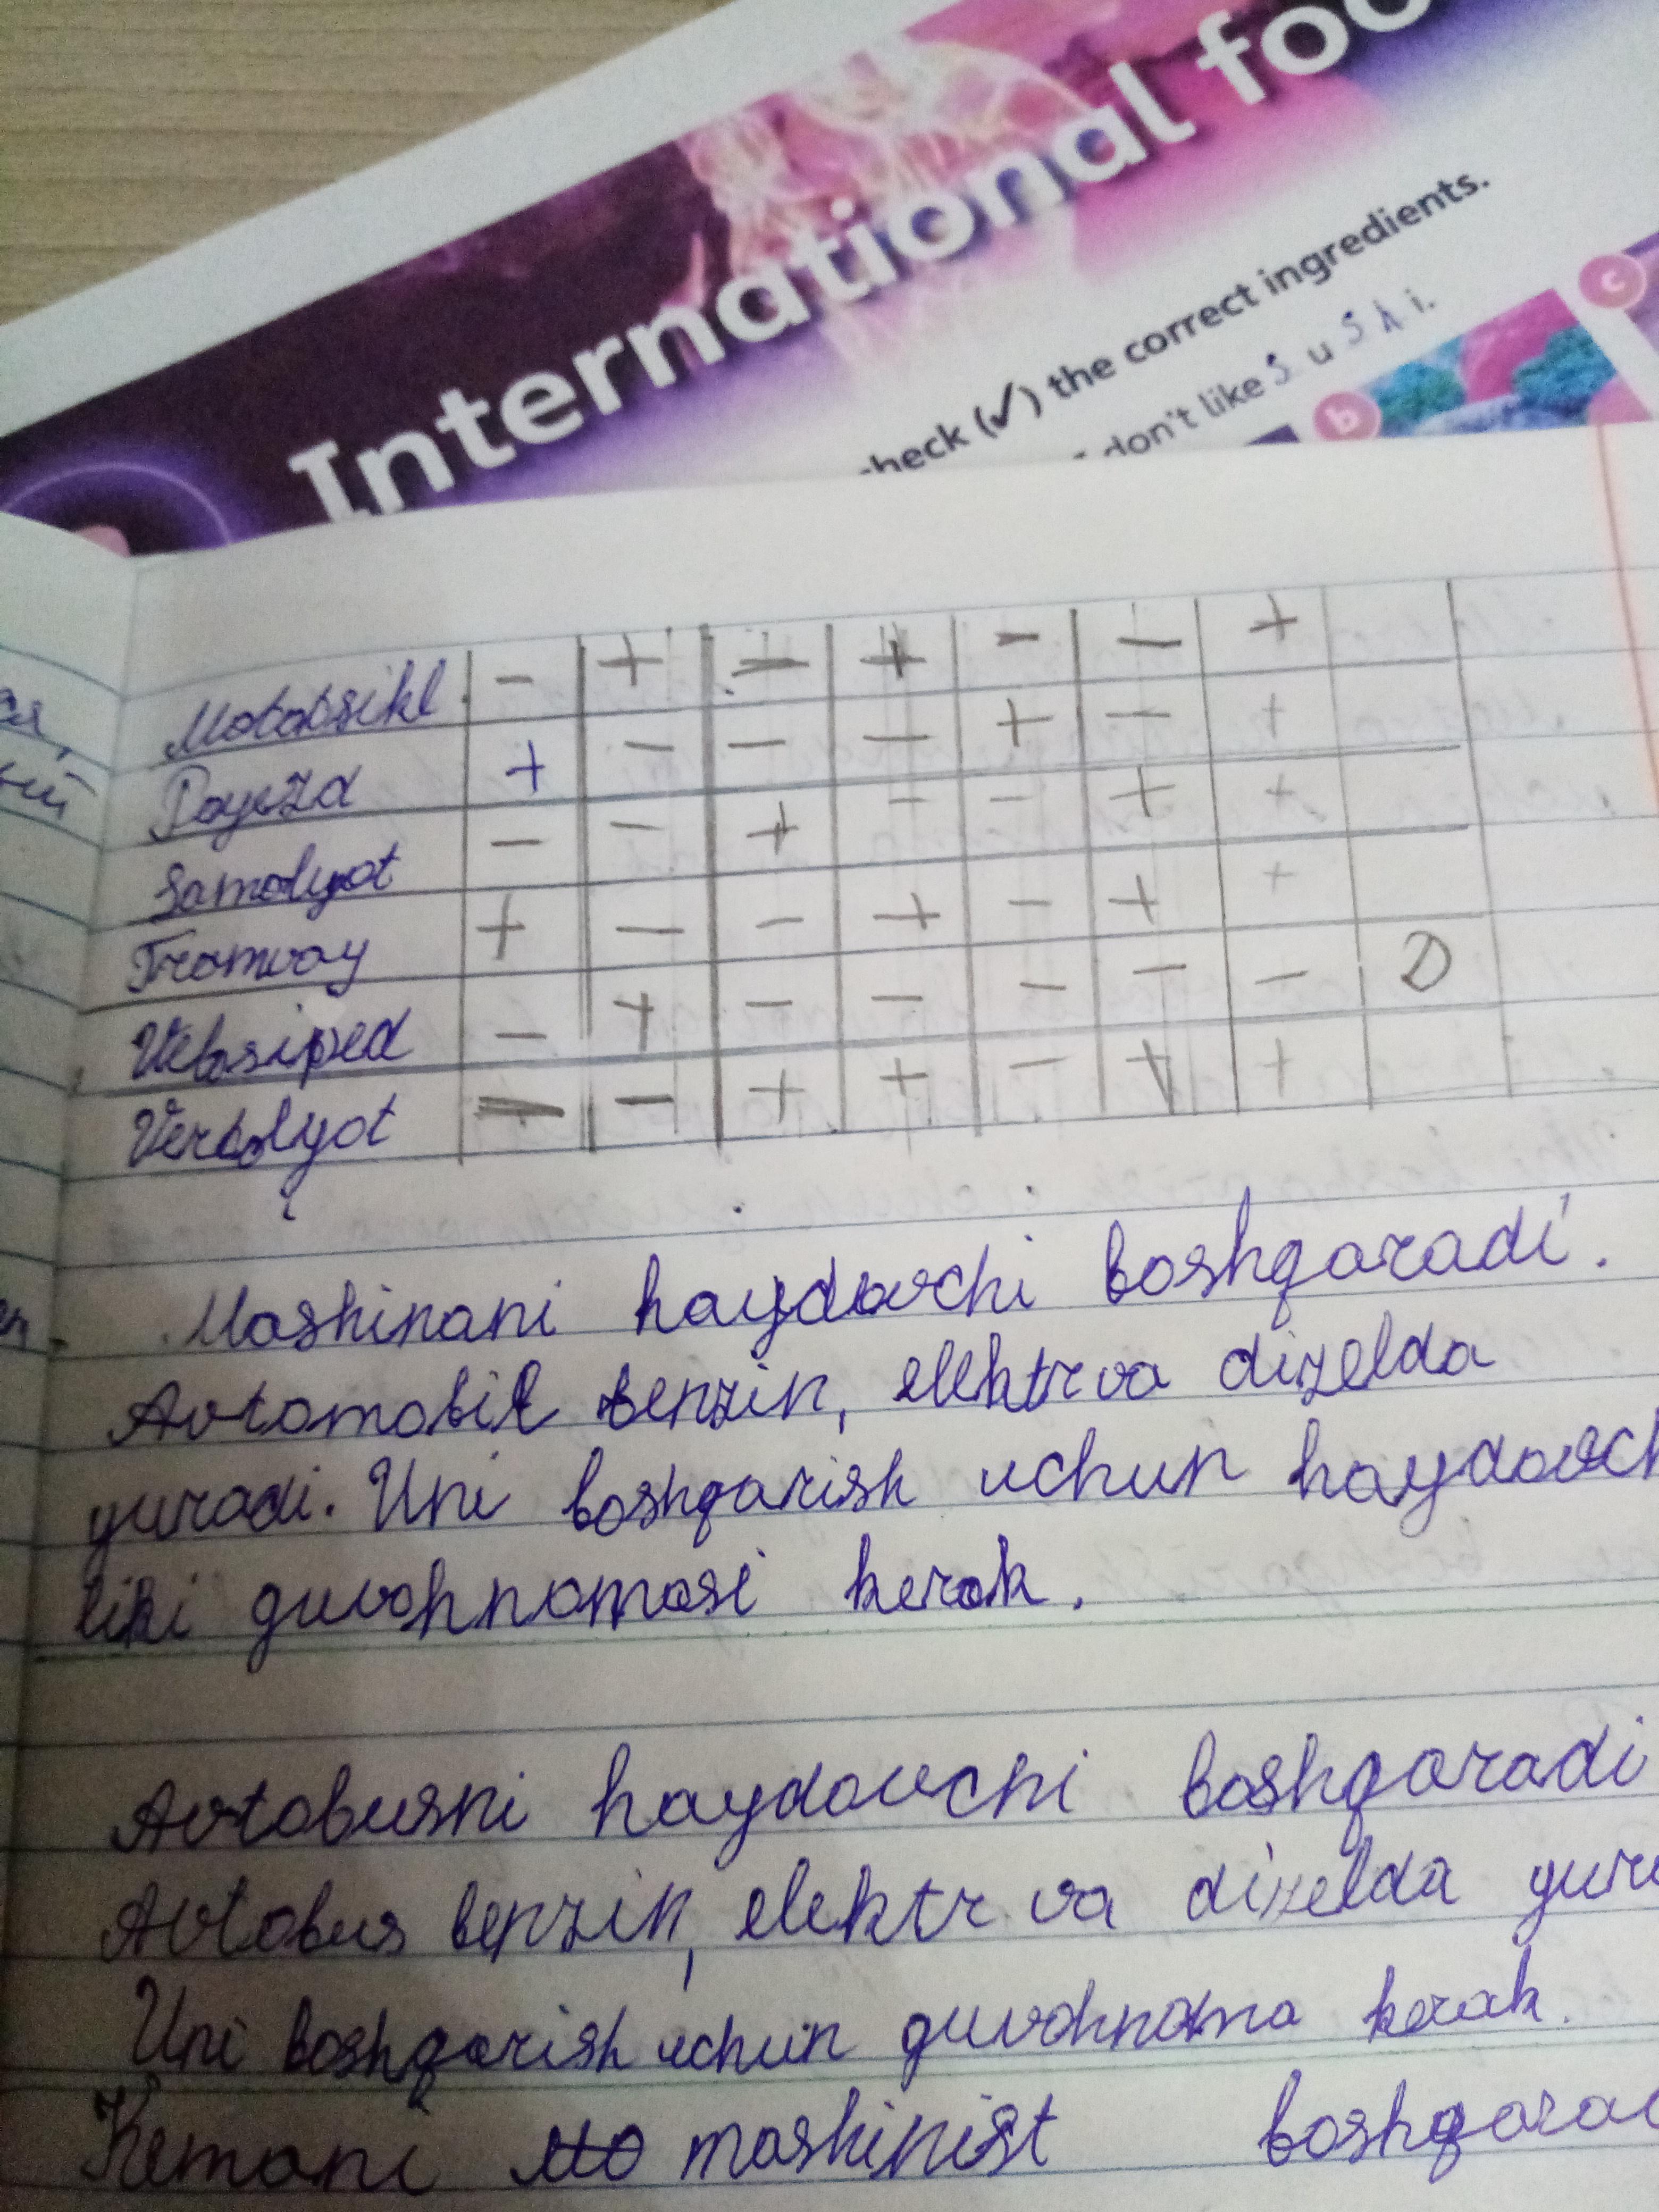 International foo
check (✓) the correct ingredients.
I don't like sushi.
b
c
Mototsikl - + - + - - +
Poyezd + - - - + - +
Samolyot - - + - - + +
Tramvay + - - + - + +
Velosiped - + - - - - - D
Vertolyot - - + + - + +
Mashinani haydovchi boshqaradi.
Avtomobil benzin, elektr va dizelda
yuradi. Uni boshqarish uchun haydovch
liki guvohnomasi kerak.
Avtobusni haydovchi boshqaradi
Avtobus benzin, elektr va dizelda yur
Uni boshqarish uchun guvohnoma kerak.
Kemani mashinist boshqarad